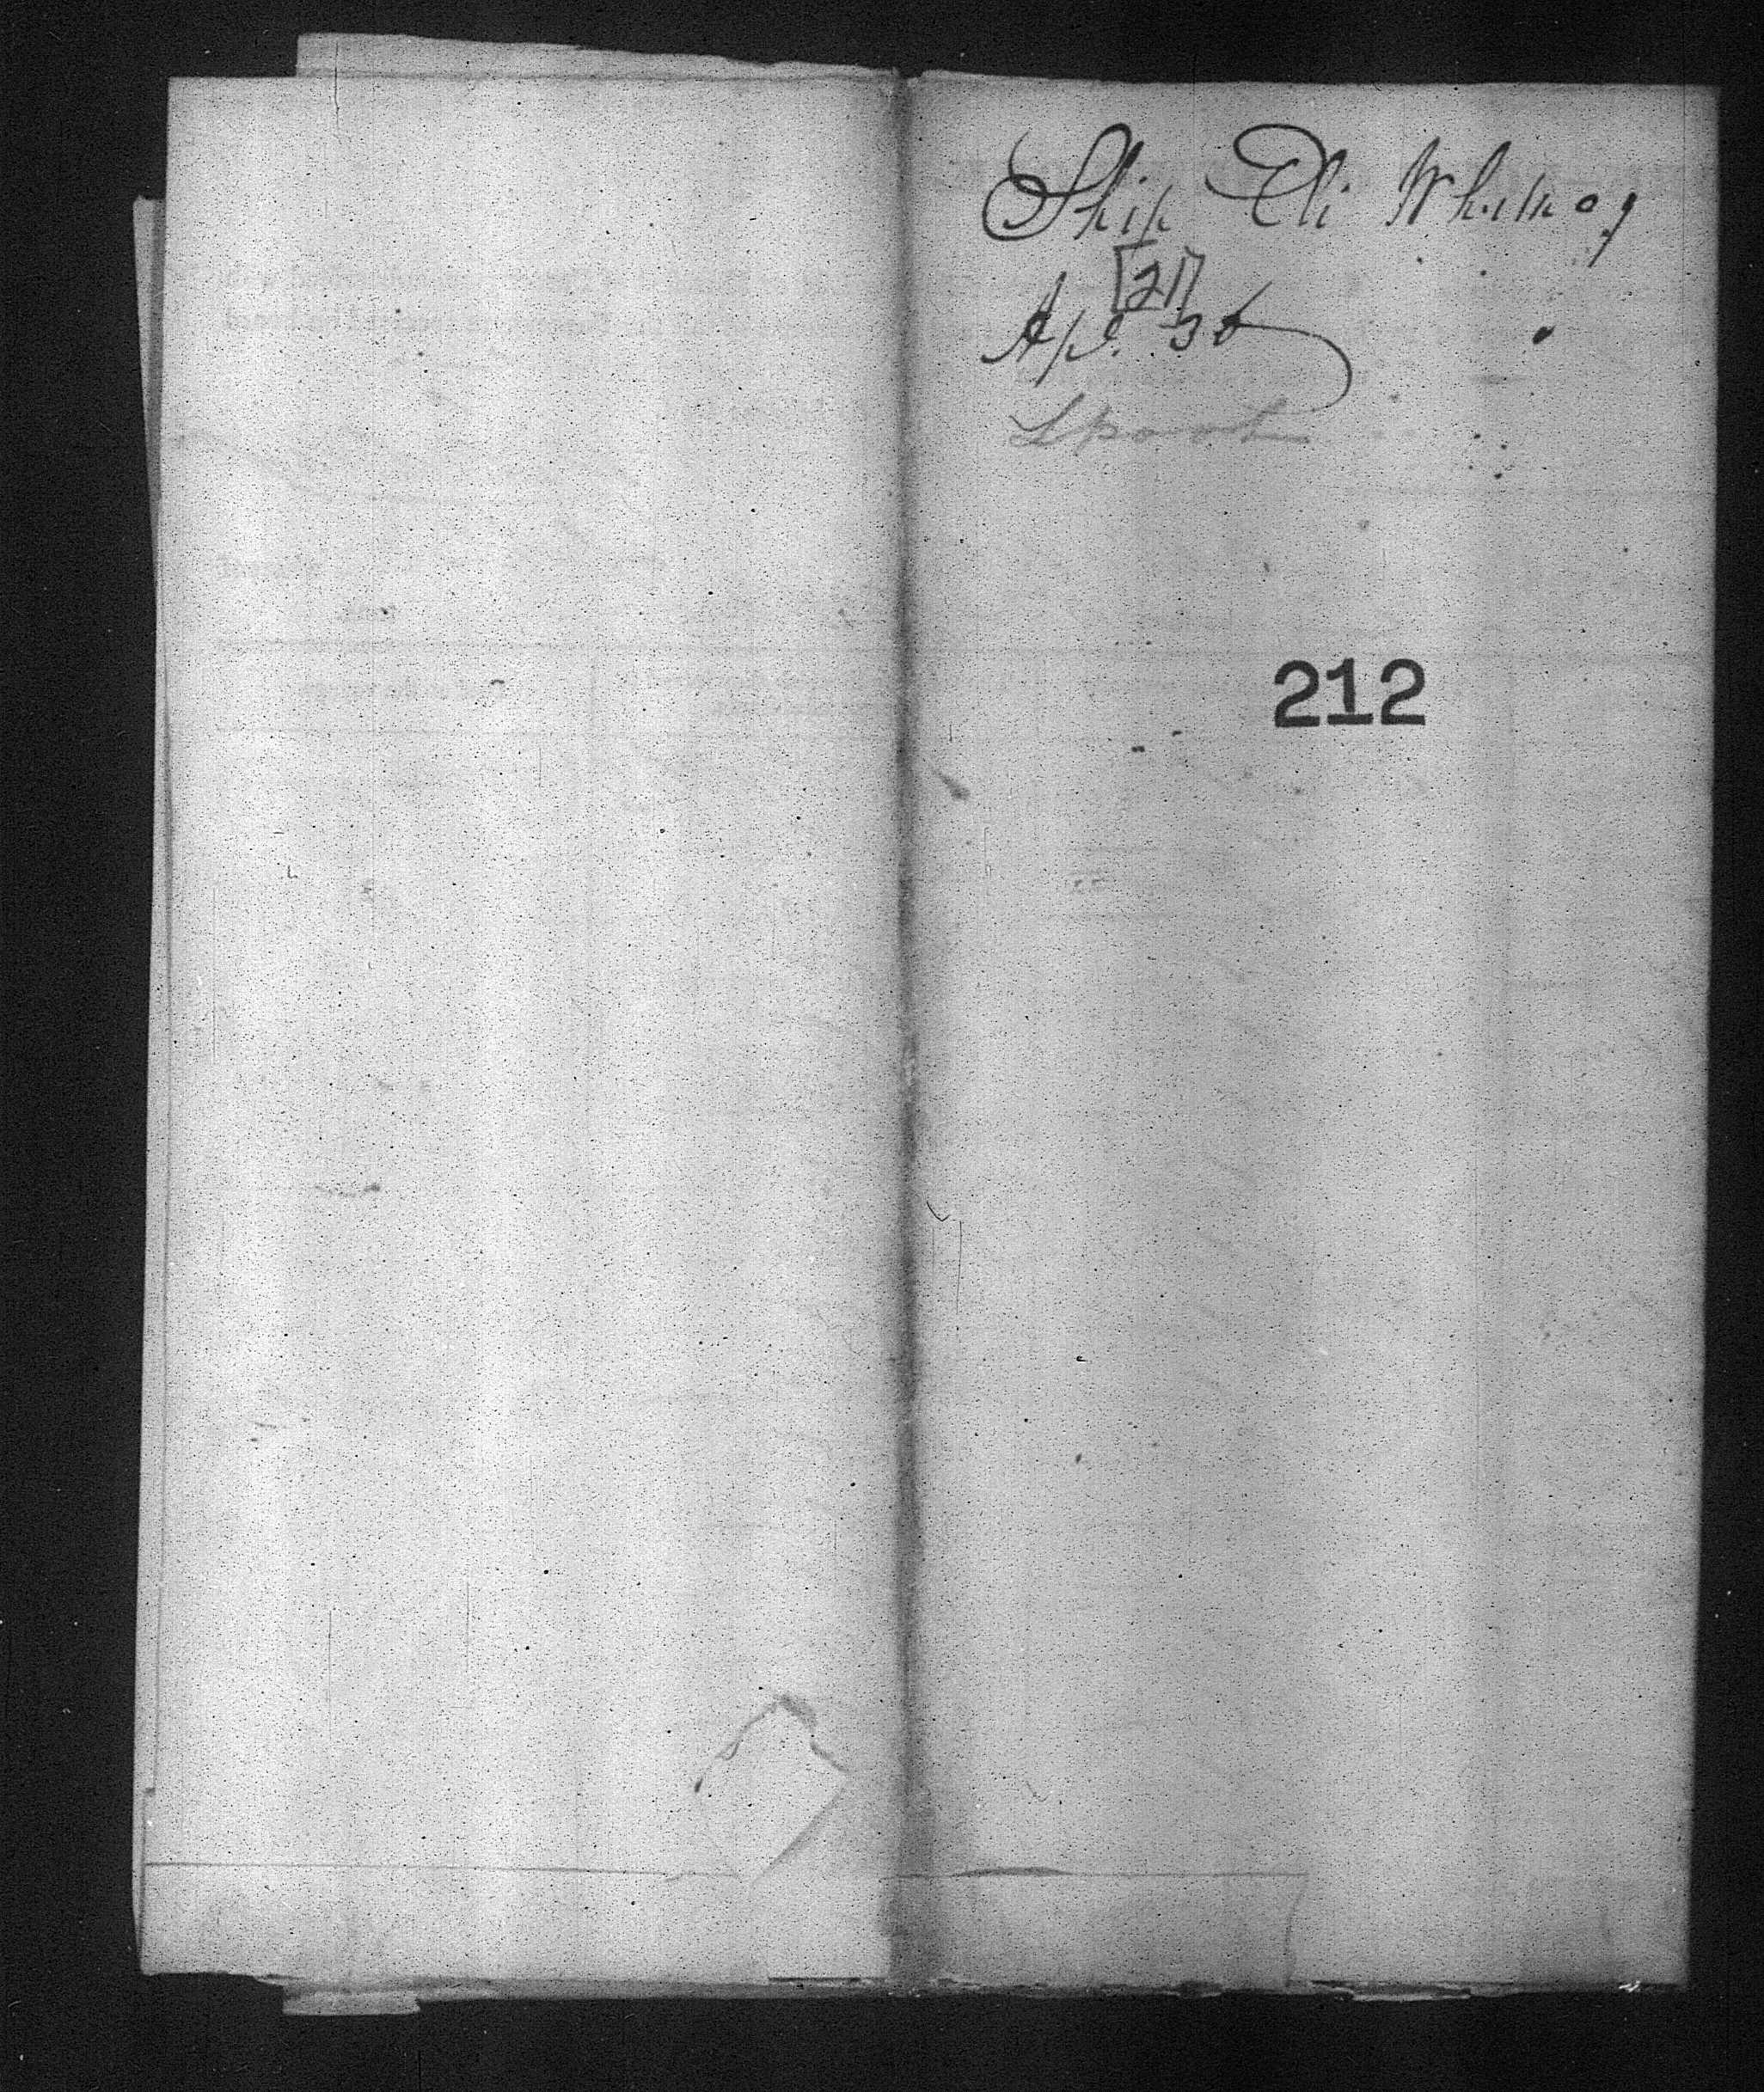 Ship Eli Whitney
[21]
Apl. 30
Lpool
212